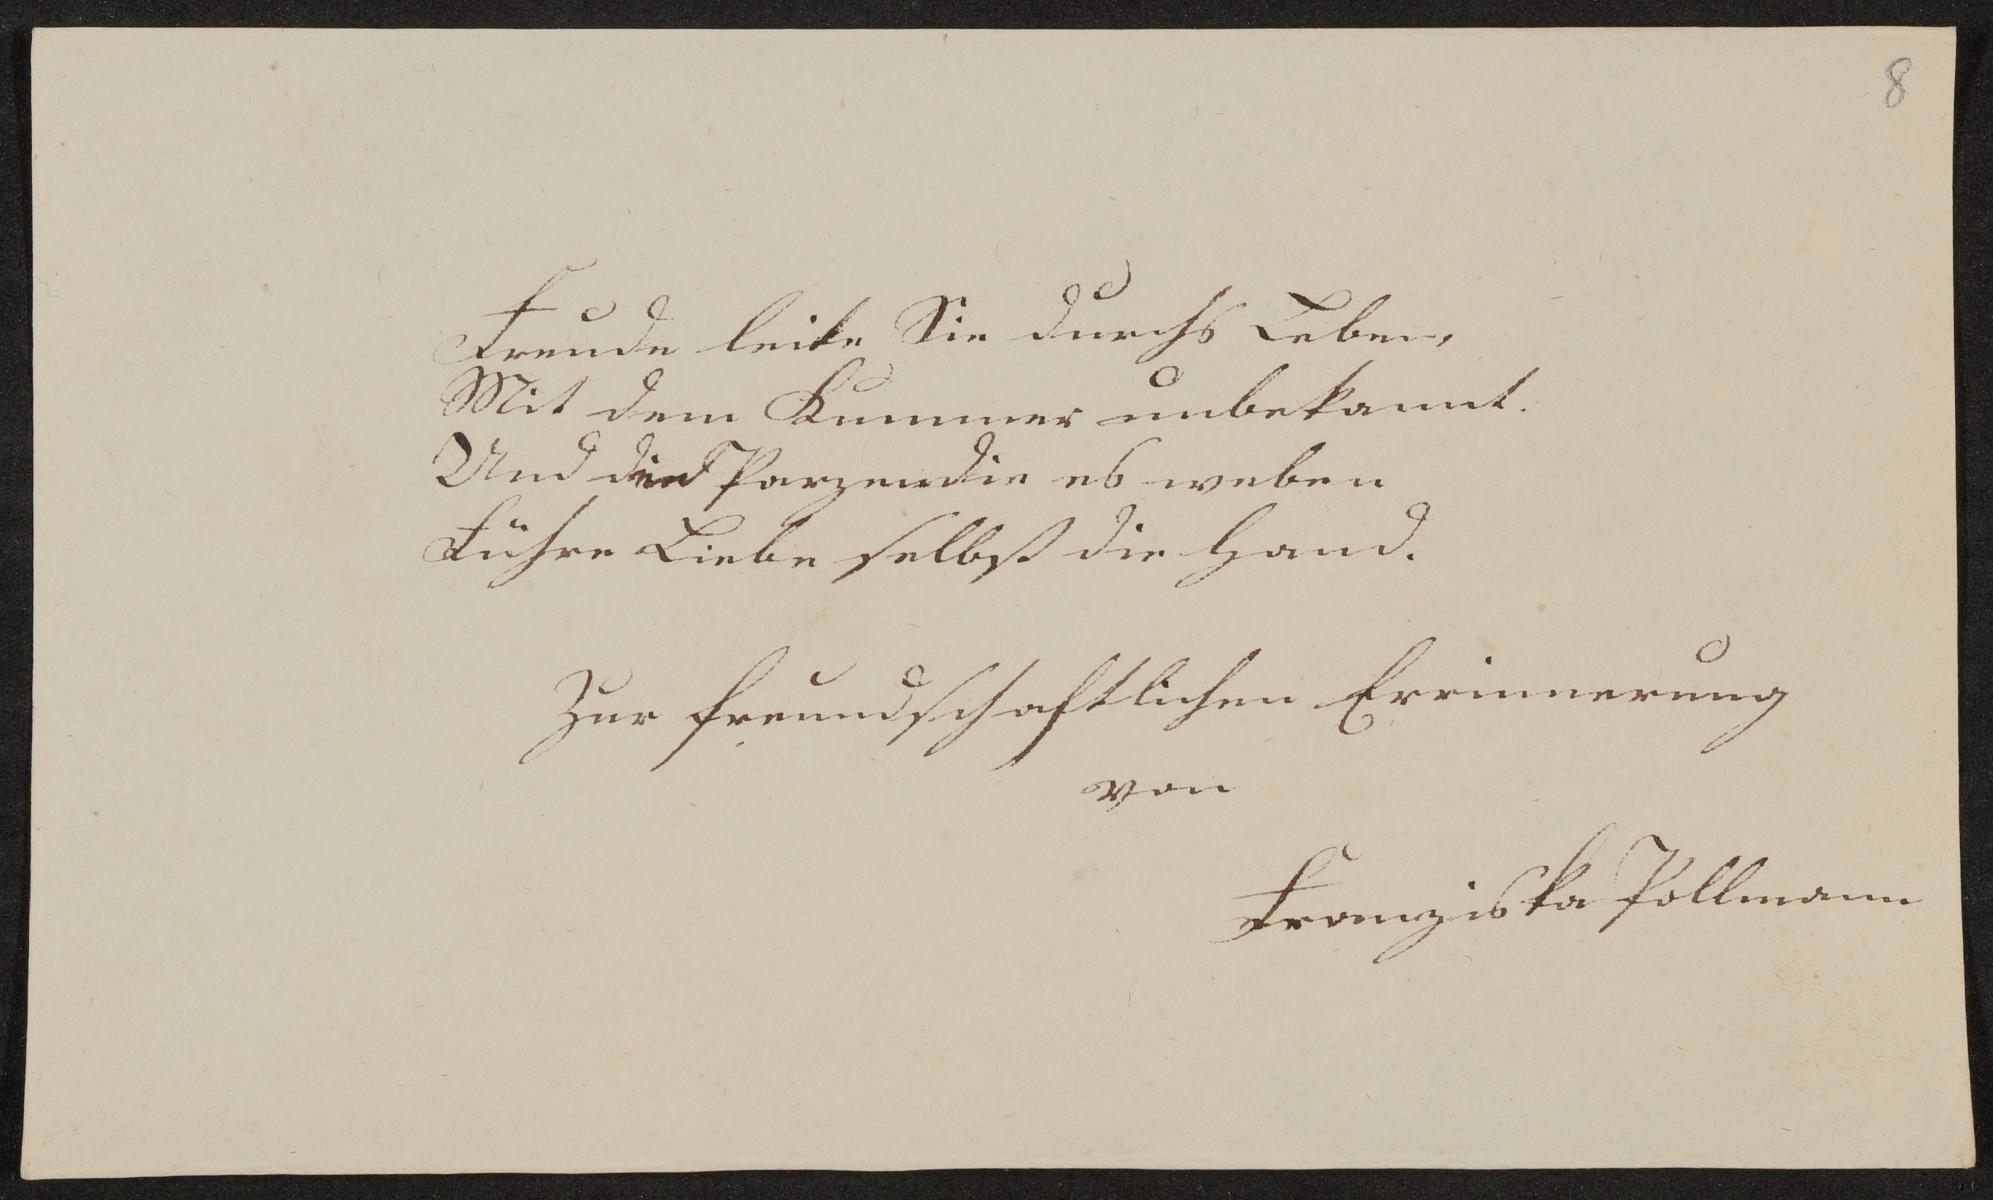 8
Freude leite Sie durchs Leben,
Mit dem Kummer unbekannt.
Und Parzen die es weben
Führe Liebe selbst die Hand.
Zur freundschaftlichen Errinnerung
von
Franziska Pollmann